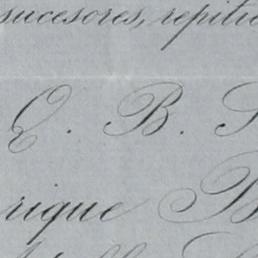 sucesores, repitie
E. B. S
rique B